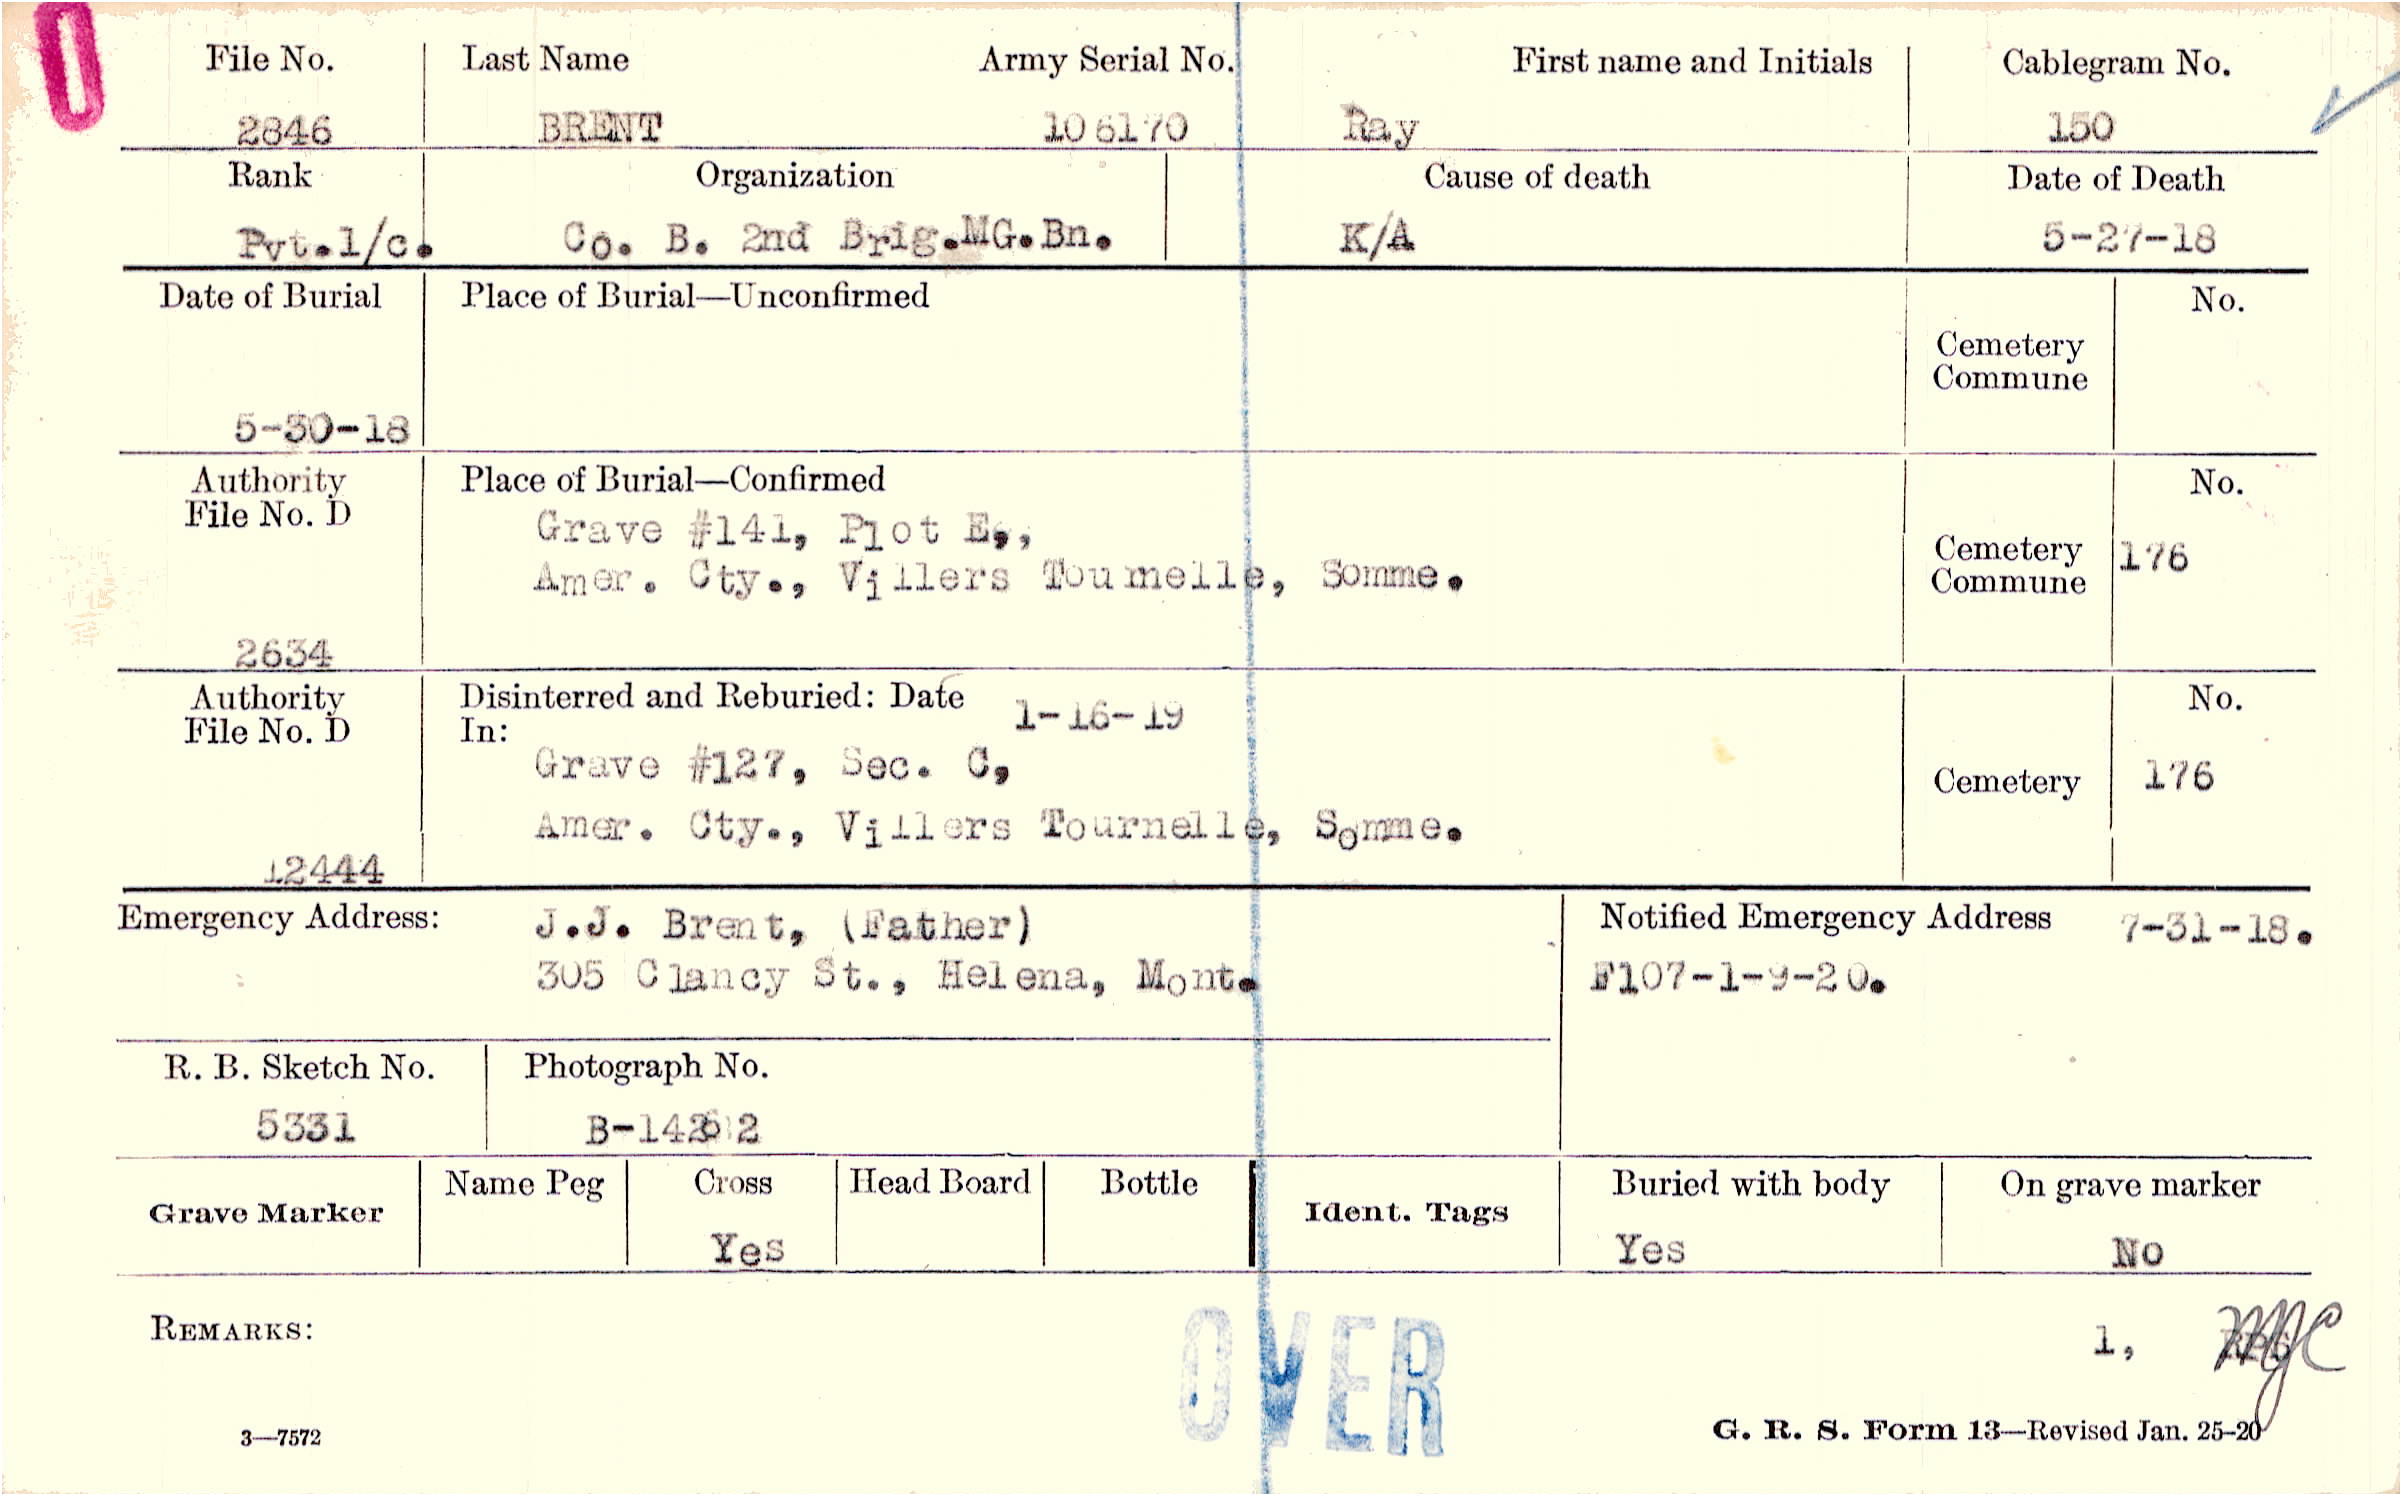 0
File No. Last Name Army Serial No. First name and Initials Cablegram No.
2846 BRENT 106170 Ray 150
Rank Organization Cause of death Date of Death
Pvt.1/c. Co. B. 2nd Brig.MG.Bn. K/A 5-27-18
Date of Burial Place of Burial—Unconfirmed No.
Cemetery
Commune
5-30-18
Authority Place of Burial—Confirmed No.
File No. D
Grave #141, Plot E,,
Amer. Cty., Villers Tournelle, Somme. Cemetery 176
Commune
2634
Authority Disinterred and Reburied: Date 1-16-19 No.
File No. D In:
Grave #127, Sec. C,
Cemetery 176
Amer. Cty., Villers Tournelle, Somme.
12444
Emergency Address: J.J. Brent, (Father) Notified Emergency Address 7-31-18.
305 Clancy St., Helena, Mont. F107-1-9-20.
R. B. Sketch No. Photograph No.
5331
Grave Marker Name Peg Cross Head Board Bottle Ident. Tags Buried with body On grave marker
Yes Yes No
REMARKS: 1,
OVER
3—7572 G. R. S. Form 13—Revised Jan. 25-20